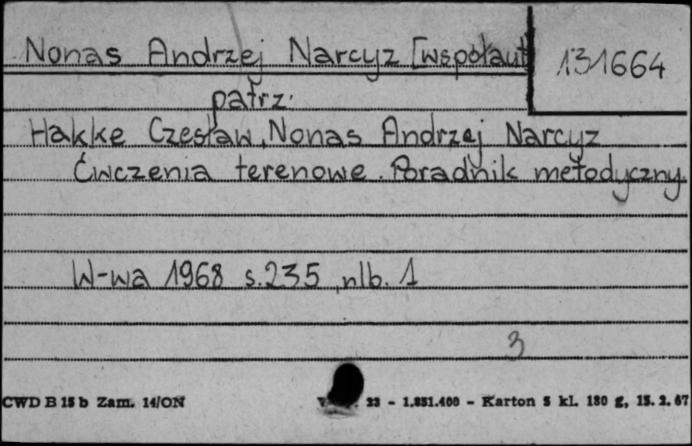 Nonas Andrzej Narcyz [współaut
131664
patrz:
Hakke Czesław, Nonas Andrzej Narcyz
Ćwiczenia terenowe. Poradnik metodyczny.
W-wa 1968 s.235, nlb. 1
3
CWD B 15 b Zam. 14/ON
23 - 1.851.400 - Karton 5 kl. 180 g, 15. 2. 67